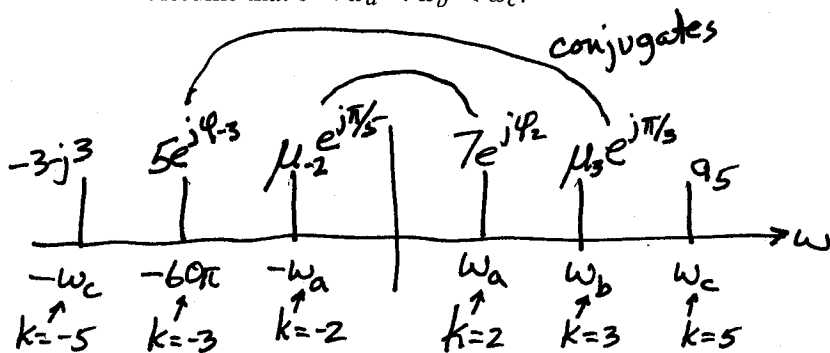 conjugates
-3-j3 5e^{jφ_{-3}} μ_{-2}e^{jπ/5} 7e^{jφ_2} μ_3e^{jπ/3} a_5
ω
-ω_c -60π -ω_a ω_a ω_b ω_c
k=-5 k=-3 k=-2 k=2 k=3 k=5